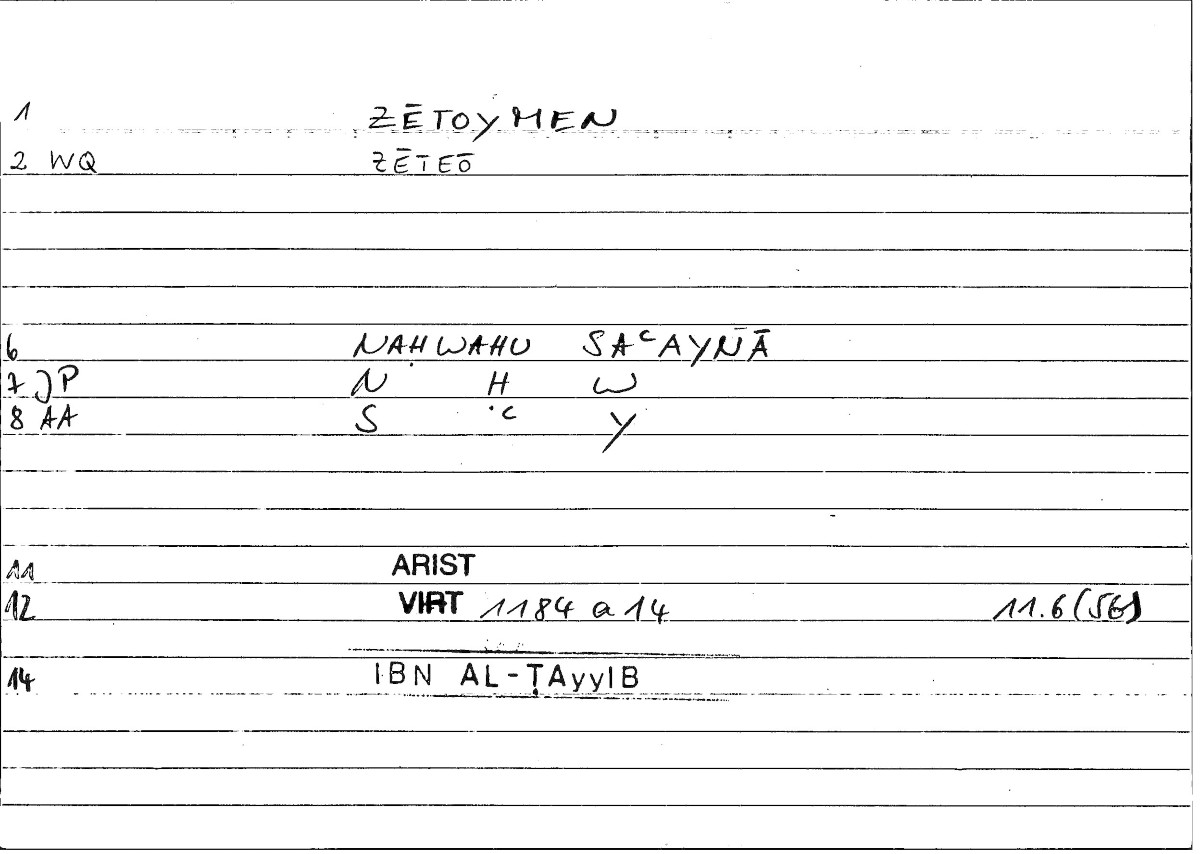 1 ZĒTOYMEN
2 WQ ZĒTEŌ
6 NAḤWAHU SAᶜAYNĀ
7 JP N Ḥ W
8 AA S ᶜ Y
11 ARIST
12 VIRT 1184 a 14 11.6(56)
14 IBN AL-ṬAyyIB